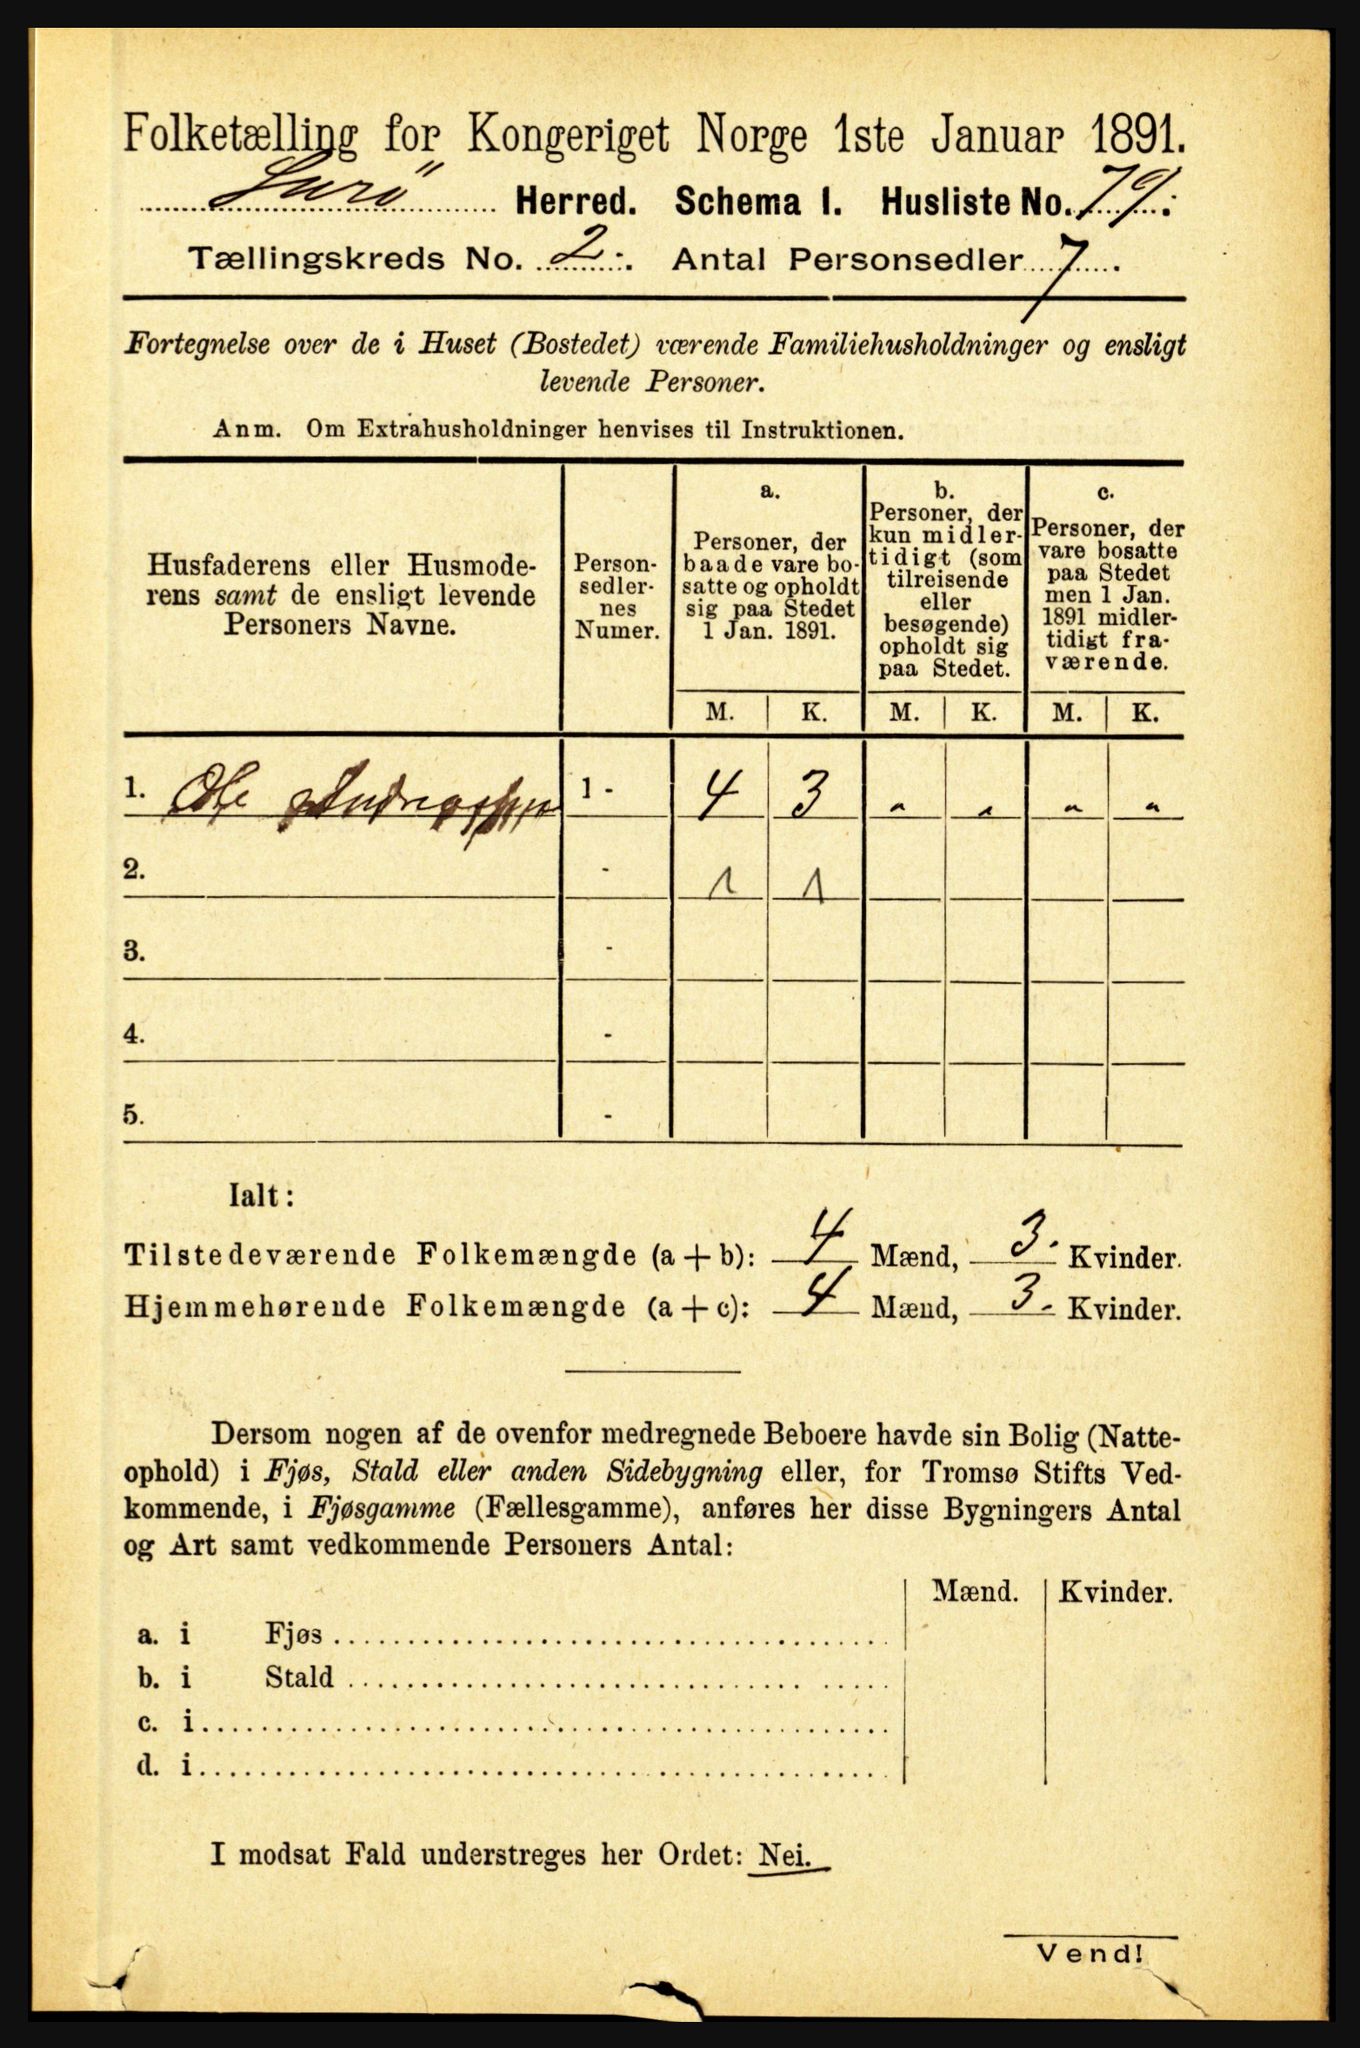 Folketælling for Kongeriget Norge 1ste Januar 1891.
Lurö Herred. Schema I. Husliste No. 79.
Tællingskreds No. 2. Antal Personsedler 7.
Fortegnelse over de i Huset (Bostedet) værende Familiehusholdninger og ensligt
levende Personer.
Anm. Om Extrahusholdninger henvises til Instruktionen.
Husfaderens eller Husmode-
rens samt de ensligt levende
Personers Navne.
Person-
sedler-
nes
Numer.
a.
Personer, der
baade vare bo-
satte og opholdt
sig paa Stedet
1 Jan. 1891.
b.
Personer, der
kun midler-
tidigt (som
tilreisende
eller
besøgende)
opholdt sig
paa Stedet.
c.
Personer, der
vare bosatte
paa Stedet
men 1 Jan.
1891 midler-
tidigt fra-
værende.
M. K. M. K. M. K.
1. Ole Andreassen 1 - 4 3 " " " "
2. - 1 1
3. -
4. -
5. -
Ialt:
Tilstedeværende Folkemængde (a + b): 4 Mænd, 3. Kvinder.
Hjemmehørende Folkemængde (a + c): 4 Mænd, 3. Kvinder.
Dersom nogen af de ovenfor medregnede Beboere havde sin Bolig (Natte-
ophold) i Fjøs, Stald eller anden Sidebygning eller, for Tromsø Stifts Ved-
kommende, i Fjøsgamme (Fællesgamme), anføres her disse Bygningers Antal
og Art samt vedkommende Personers Antal:
Mænd. Kvinder.
a. i Fjøs
b. i Stald
c. i
d. i
I modsat Fald understreges her Ordet: Nei.
Vend!